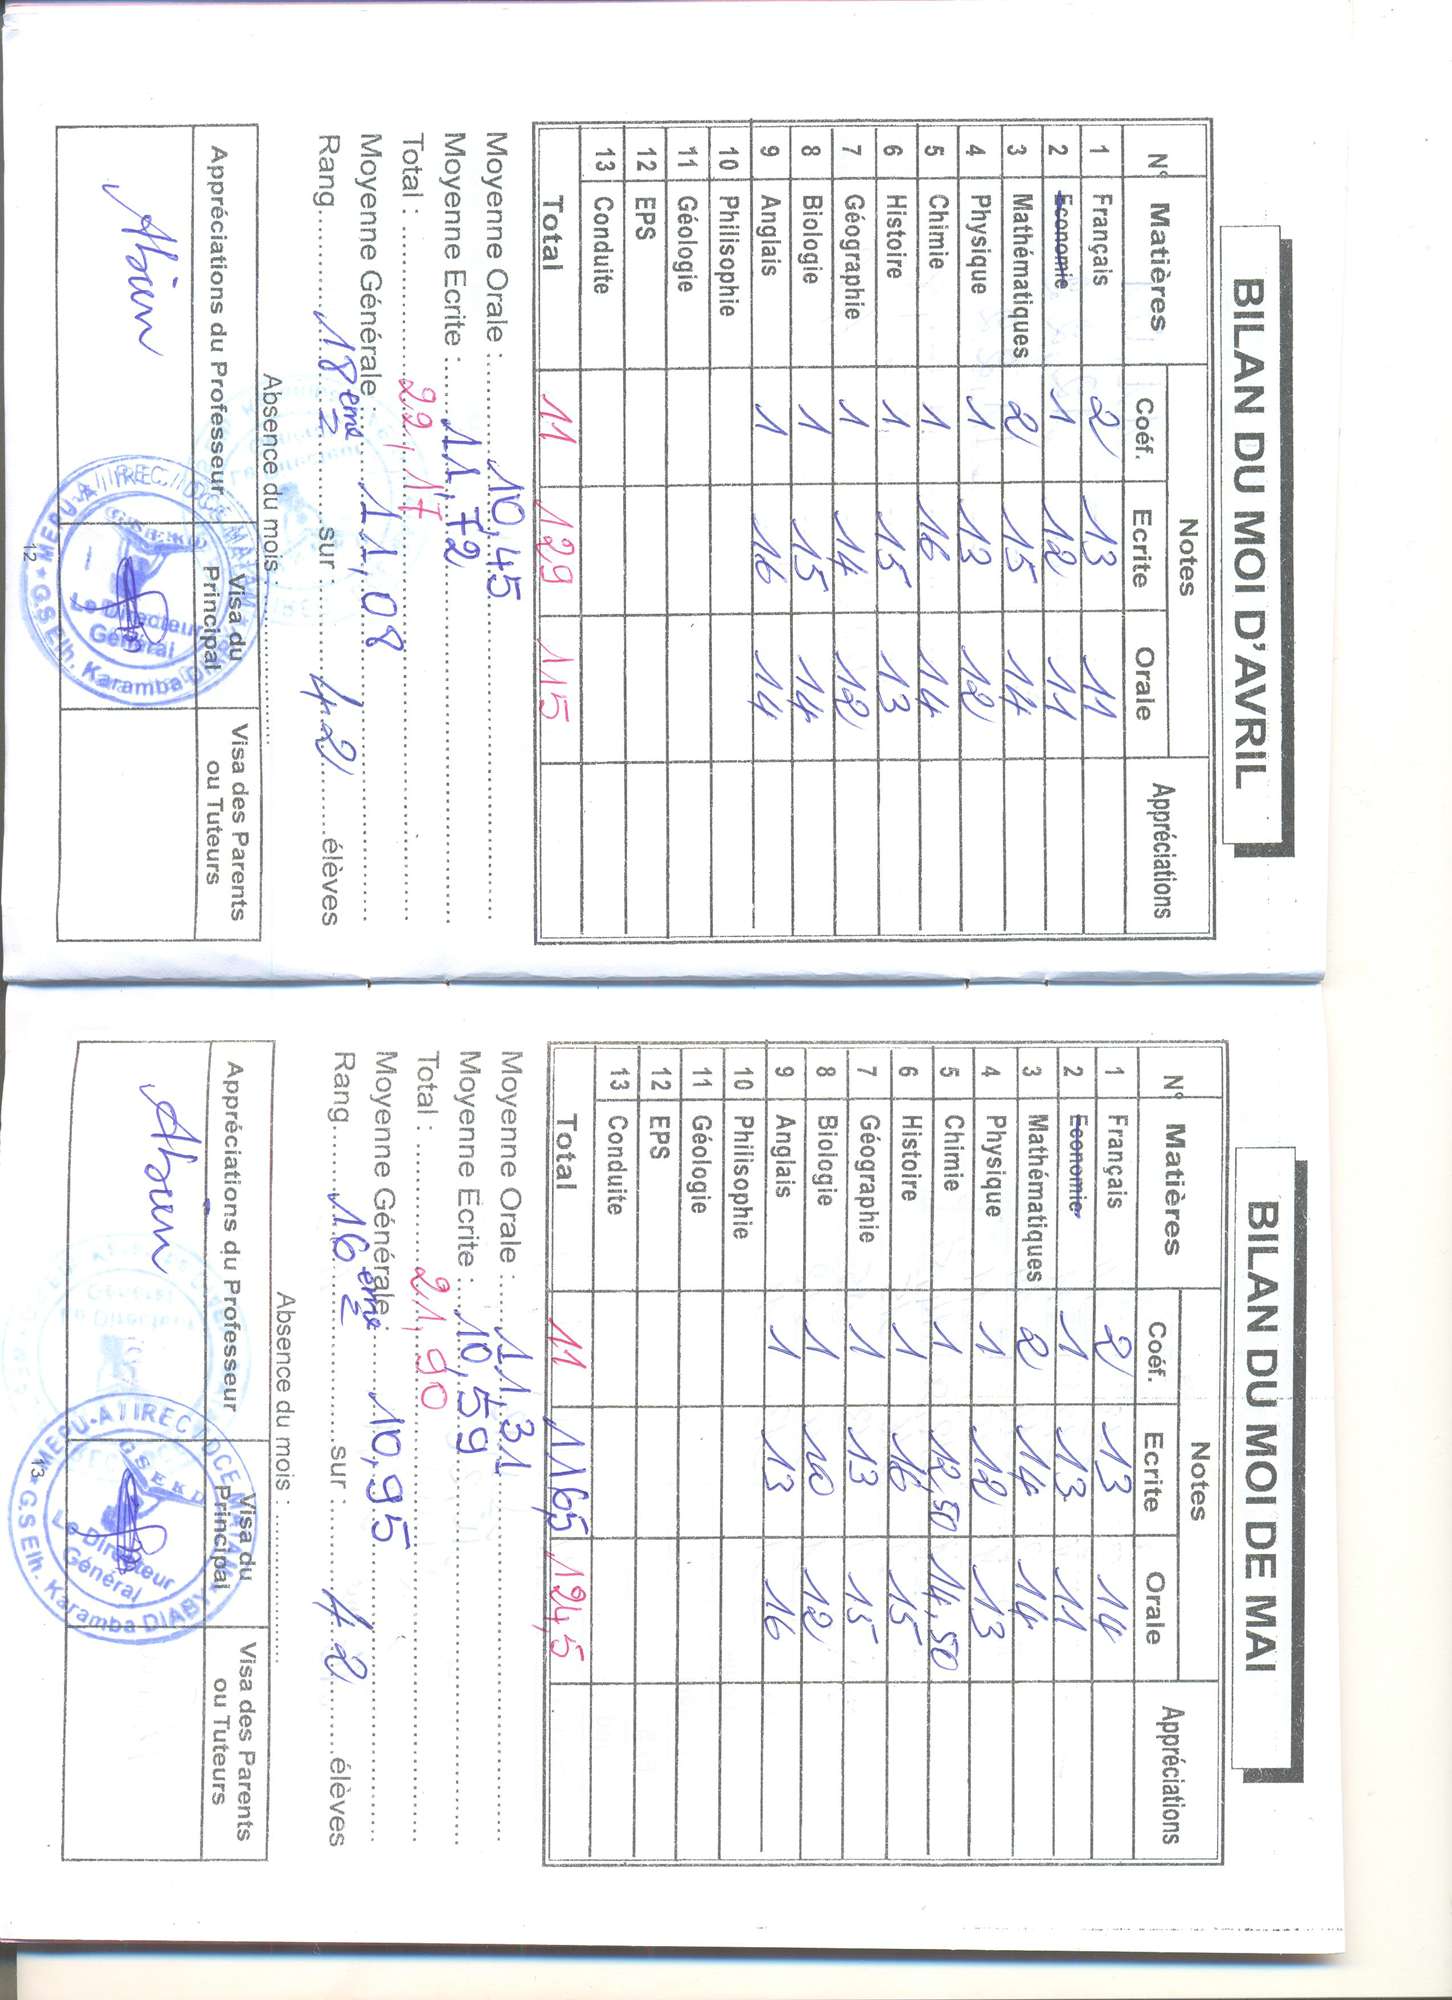 BILAN DU MOI D'AVRIL
N° Matières Notes Appréciations
Coéf. Ecrite Orale
1 Français 2 13 11
2 Economie 1 12 11
3 Mathématiques 2 15 14
4 Physique 1 13 12
5 Chimie 1 16 14
6 Histoire 1 15 13
7 Géographie 1 14 12
8 Biologie 1 15 14
9 Anglais 1 16 14
10 Philisophie
11 Géologie
12 EPS
13 Conduite
Total 11 129 115
Moyenne Orale : 10,45
Moyenne Ecrite : 11,72
Total : 22,17
Moyenne Générale : 11,08
Rang 18ème sur : 42 élèves
Absence du mois :
Appréciations du Professeur Visa du Principal Visa des Parents ou Tuteurs
Abien
Le Directeur
Général
G.S Elh. Karamba
12
BILAN DU MOI DE MAI
N° Matières Notes Appréciations
Coéf. Ecrite Orale
1 Français 2 13 14
2 Economie 1 13 11
3 Mathématiques 2 14 14
4 Physique 1 12 13
5 Chimie 1 12,50 14,50
6 Histoire 1 16 15
7 Géographie 1 13 15
8 Biologie 1 10 12
9 Anglais 1 13 16
10 Philisophie
11 Géologie
12 EPS
13 Conduite
Total 11 116,5 124,5
Moyenne Orale : 11,31
Moyenne Ecrite : 10,59
Total : 21,90
Moyenne Générale : 10,95
Rang 16ème sur : 42 élèves
Absence du mois :
Appréciations du Professeur Visa du Principal Visa des Parents ou Tuteurs
Abien
GSEKD
Le Directeur
Général
G.S Elh. Karamba DIABY
13